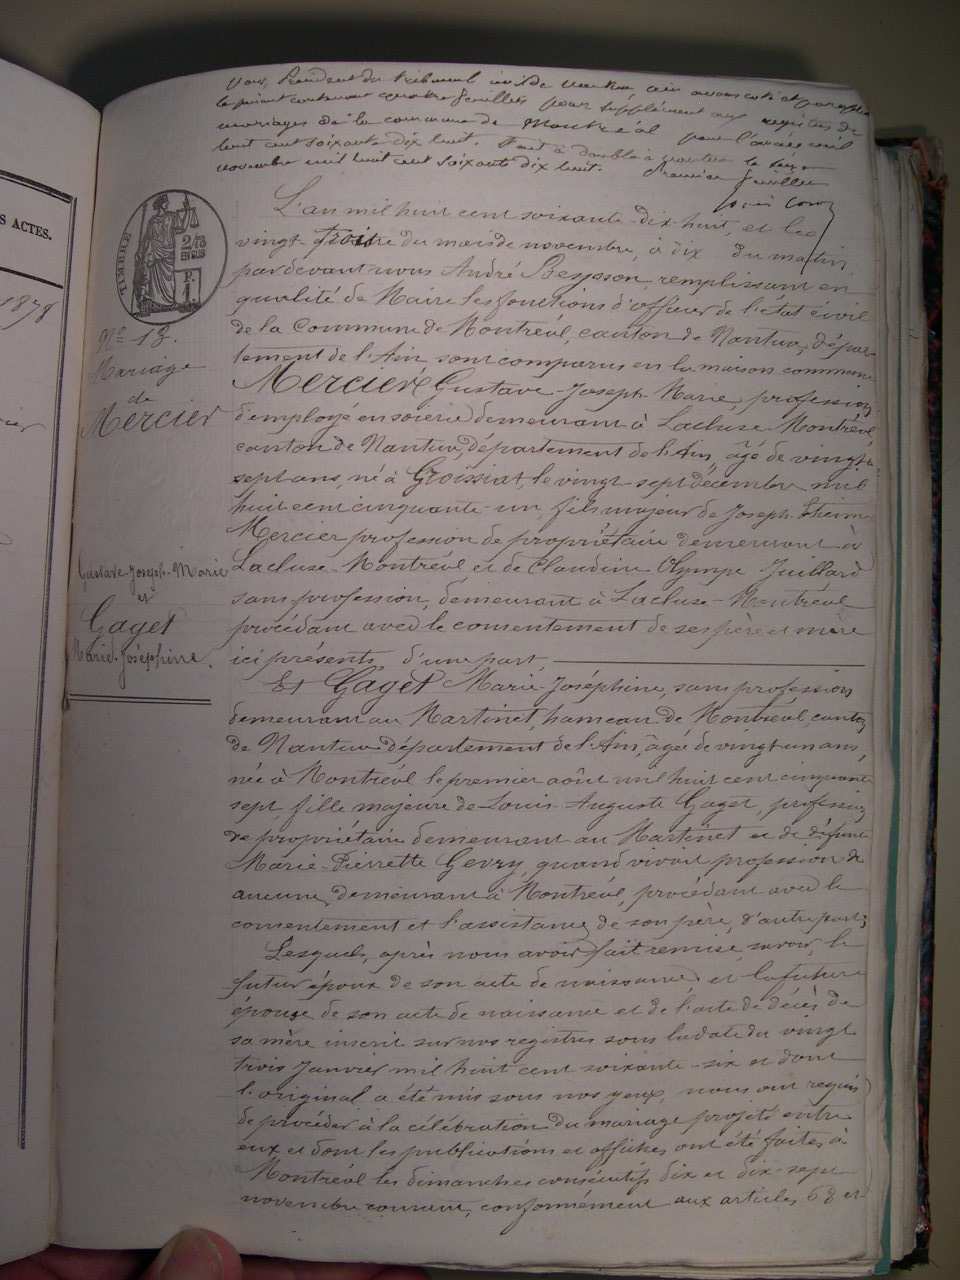 S ACTES.
1878
Nous, Président du tribunal civil de Nantua, avons coté et paraphé
le présent contenant quatre feuillets pour supplément aux registres de
mariages de la commune de Montréal pour l'année mil
huit cent soixante dix huit. Fait à double à Nantua le
novembre mil huit cent soixante dix huit. Premier feuillet
TIMBRE
2/10
EN SUS
L'an mil huit cent soixante-dix-huit, et le
vingt-trois du mois de novembre, à dix du matin,
pardevant nous André Beysson remplissant en
qualité de Maire les fonctions d'officier de l'état civil
de la Commune de Montréal, canton de Nantua, dépar-
tement de l'Ain sont comparus en la maison commune
Mercier Gustave-Joseph-Marie, profession
d'employé en soierie demeurant à Lacluse-Montréal
canton de Nantua, département de l'Ain, âgé de vingt-
sept ans, né à Groissiat, le vingt sept décembre mil
huit cent cinquante-un, fils majeur de Joseph
Mercier profession de propriétaire demeurant à
Lacluse-Montréal et de Claudine Olympe Juillard
sans profession, demeurant à Lacluse-Montréal
procédant avec le consentement de ses père et mère
ici présents, d'une part,
Et Gaget Marie-Joséphine, sans profession
demeurant au Martinet, hameau de Montréal, canton
de Nantua département de l'Ain, âgée de vingt un ans,
née à Montréal le premier août mil huit cent cinquante
sept, fille majeure de Louis-Auguste Gaget, profession
de propriétaire demeurant au Martinet et de défunte
Marie-Pierrette Gevry, quand vivait profession de
aucune, demeurant à Montréal, procédant avec le
consentement et l'assistance de son père, d'autre part;
Lesquels, après nous avoir fait remise, savoir, le
futur époux de son acte de naissance et la future
épouse de son acte de naissance et de l'acte de décès de
sa mère inscrit sur nos registres sous la date du vingt
trois Janvier mil huit cent soixante-six et dont
l'original a été mis sous nos yeux, nous ont requis
de procéder à la célébration du mariage projeté entre
eux et dont les publications et affiches ont été faites à
Montréal les dimanches consécutifs dix et dix-sept
novembre courant, conformément aux articles 63 et
No 13.
Mariage
de
Mercier
Gustave-Joseph-Marie
et
Gaget
Marie-Joséphine.